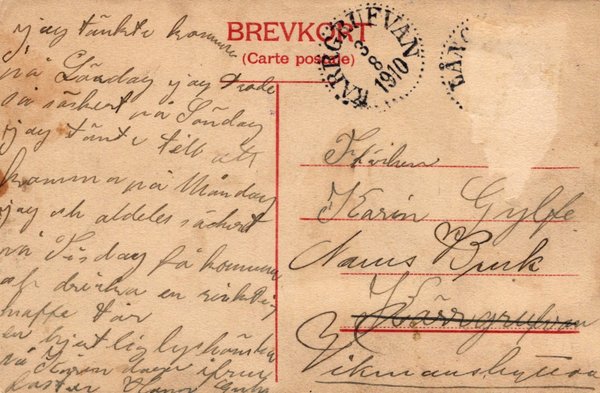 BREVKORT
(Carte postale)
KÄRRGRUFVAN
8 3
1910
LÅNG
jag tänkte komma
på Söndag jag trode
så säkert på Söndag
jag tänte till att
komma på Måndag
jag och aldeles säkert
på Tisdag få komma
och dricka en riktig
kaffe tår
en hjertlig lyckönskan
på
Fröken
Karin Gylfe
Kärrgrufvan
Vikmanshyttan